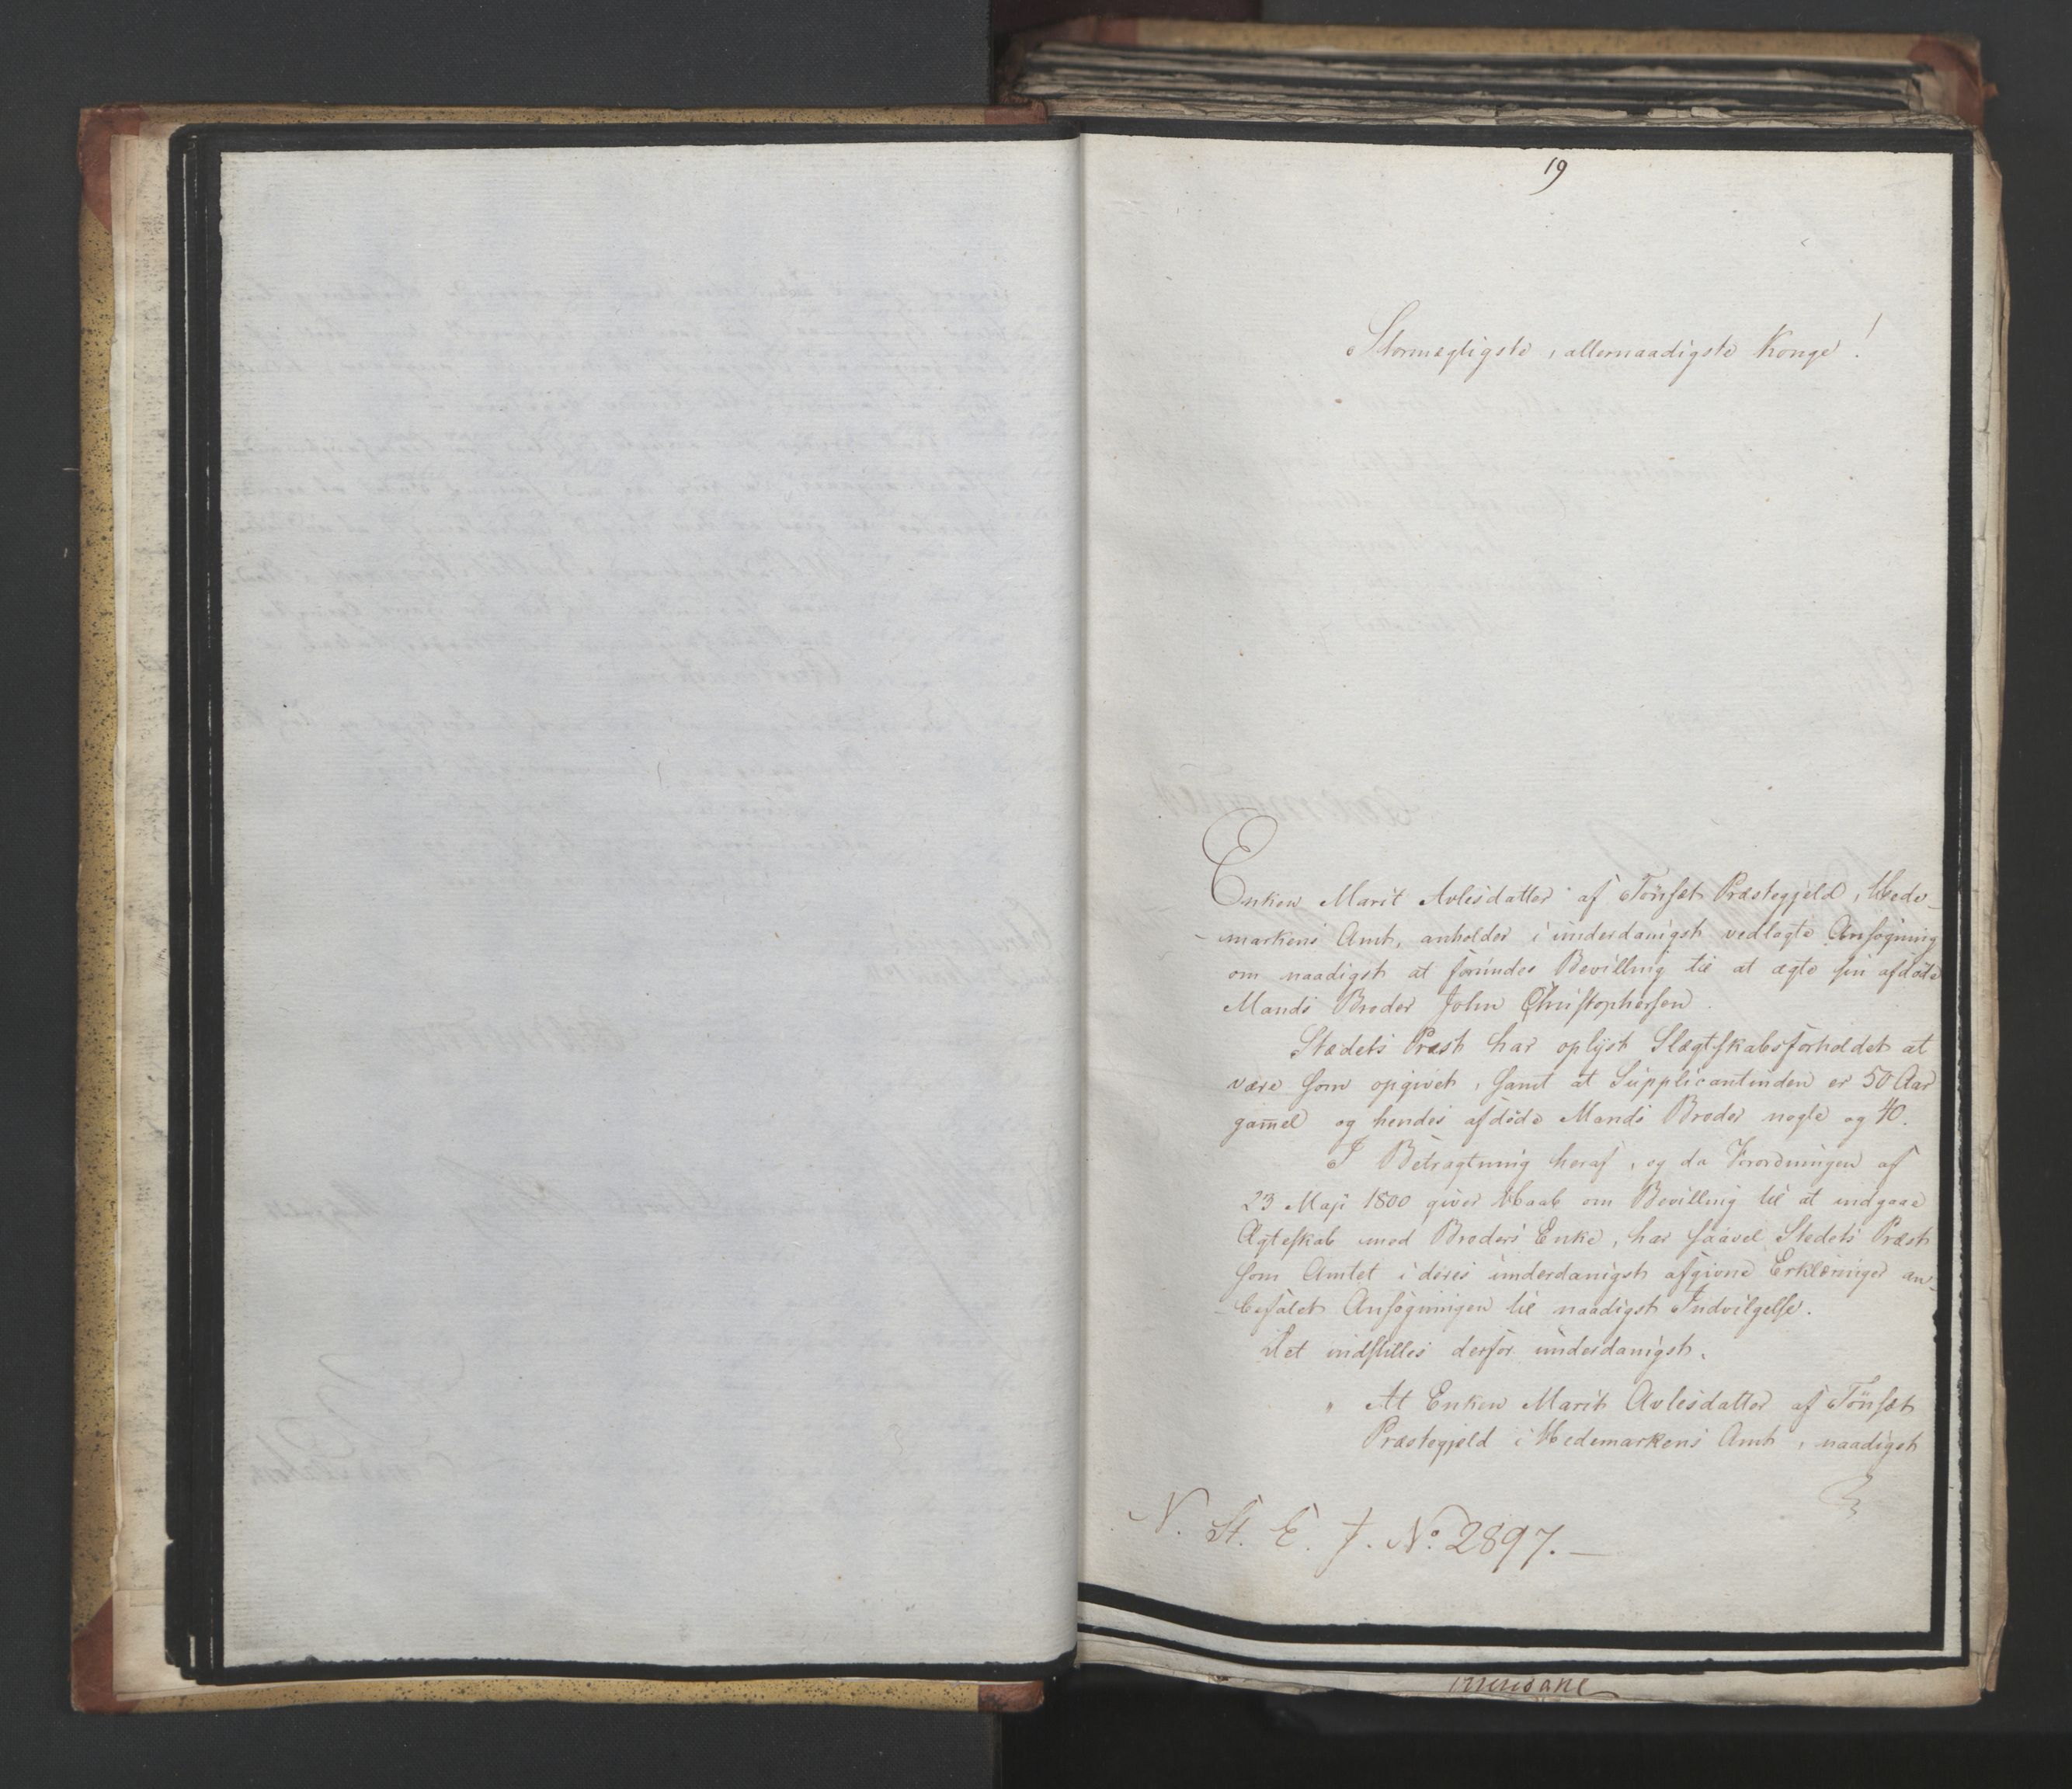 19
Stormægtigste, allernaadigste Konge!
Enken Marit Avlesdatter af Tönset Præstegjeld, Hede-
markens Amt, anholder i underdanigst vedlagte Ansøgning
om naadigst at forundes Bevilling til at ægte sin afdøde
Mands Broder John Christophersen.
Stædets Præst har oplyst Slægtskabsforholdet at
være som opgivet, samt at Supplicantinden er 50 Aar
gam̄el og hendes afdøde Mands Broder nogle og 40.
I Betragtning heraf, og da Forordningen af
23 Maji 1800 giver Haab om Bevilling til at indgaae
Ægteskab med Broders Enke, har saavel Stedets Præst
som Amtet i deres underdanigst afgivne Erklæringer an-
befalet Ansøgningen til naadigst Indvilgelse.
Det indstilles derfor underdanigst.
" At Enken Marit Avlesdatter af Tönset
Præstegjeld i Hedemarkens Amt, naadigst
N. St. E. J. No. 2897.